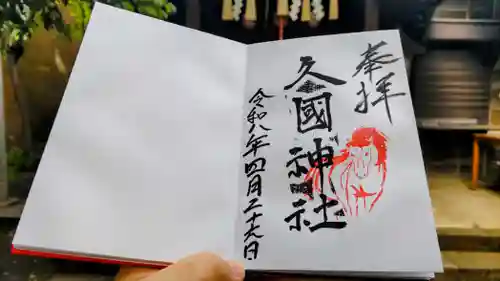 奉拝
久國神社
令和八年四月二十六日